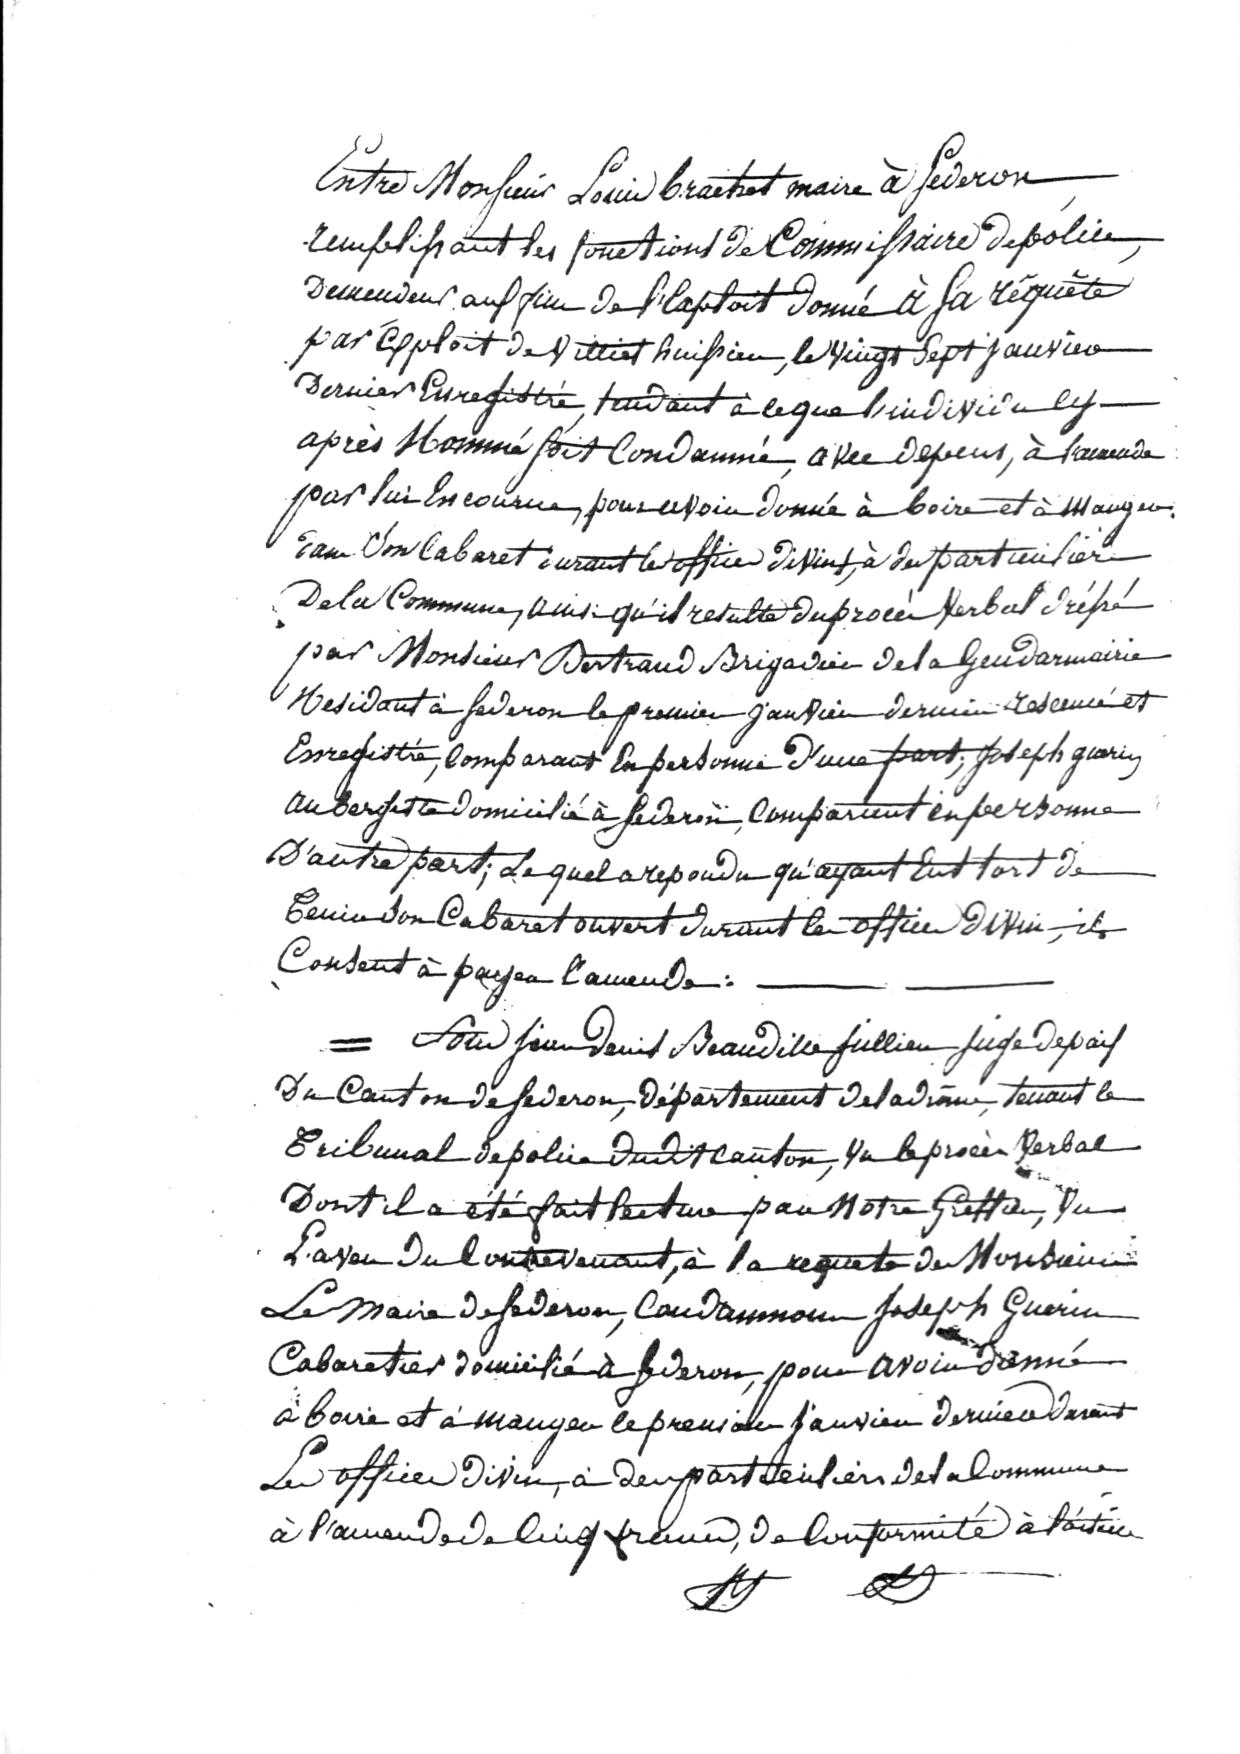 Entre Monsieur Louis brachet maire à Sederon
remplissant les fonctions de Commissaire de police,
Demendeur aux fins de l'Exploit donné à Sa réquête
par Exploit de Villiet huissier, le vingt Sept janvier
Dernier Enregistré, tendant à ce que l'individu cy
après Nommé soit Condamné, avec depens, à l'amende
par lui Encourue, pour avoir donné à boire et à manger
dans Son Cabaret durant les offices divins, à des particuliers
De la Commune, ainsi qu'il resulte du procès Verbal dréssé
par Monsieur Bertrand Brigadier de la Gendarmairie
Residant à Sederon le premier janvier dernier et
Enregistré, Comparant En personne D'une part; Joseph guerin
aubergiste domicilié à Sederon, Comparant en personne
D'autre part; Lequel a repondu qu'ayant Eut tort de
Tenir Son Cabaret ouvert durant les offices Divin, il
Consent à payer l'amende :
= Nous Jean Denis Beaudille Jullien juge de paix
Du Canton de Sederon, département de la drôme, tenant le
Tribunal de police dudit canton, Vu le procès Verbal
Dont il a été fait lecture par Notre Greffier, Vu
L'aveu du Contrevenant, à la requete de Monsieur
Le Maire de Sederon, Condamnons Joseph Guerin
Cabaretier domicilié à Sederon, pour avoir donné
à boire et à manger le premier Janvier dernier durant
Les offices Divin, à des particuliers de la Commune
à l'amende de Cinq francs, de Conformité à l'article